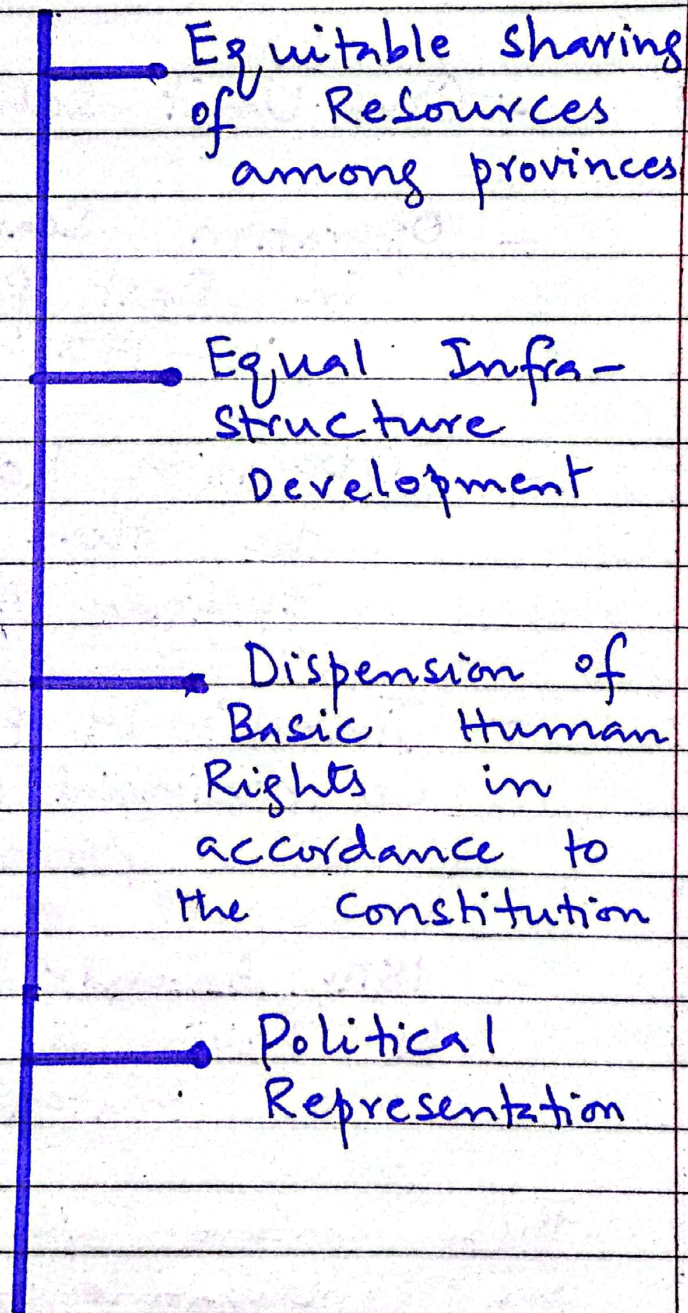 Equitable sharing
of Resources
among provinces
Equal Infra-
structure
Development
Dispension of
Basic Human
Rights in
accordance to
the Constitution
Political
Representation